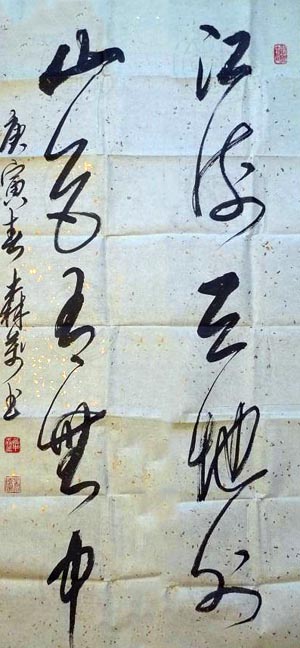 江流天地外
山色有無中
庚寅春森书